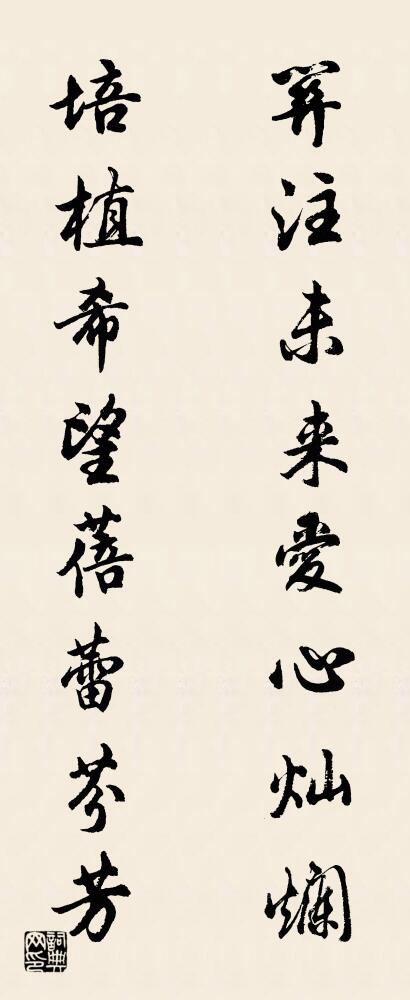 关注未来爱心灿烂
培植希望蓓蕾芬芳
詞典网印